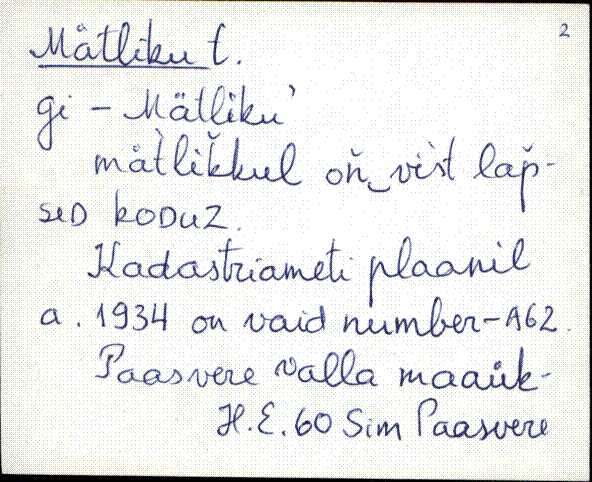 2
Mätliku t.
gi – Mätliku'
mät̀lik̆kul oň‿vèst lap̆-
sᴇᴅ koᴅuz.
Kadastriameti plaanil
a. 1934 on vaid number – A62.
Paasvere valla maaük-
H.E. 60 Sim Paasvere